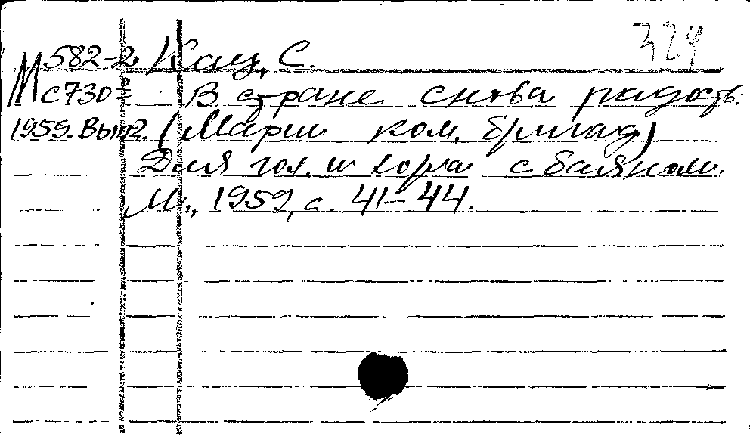 324
М 582-2 Кац, С.
С730 В стране снова радость.
1959. Вып2. (Марш ком. бригад)
Для гол. и хора с баяном.
М., 1959, с. 41-44.